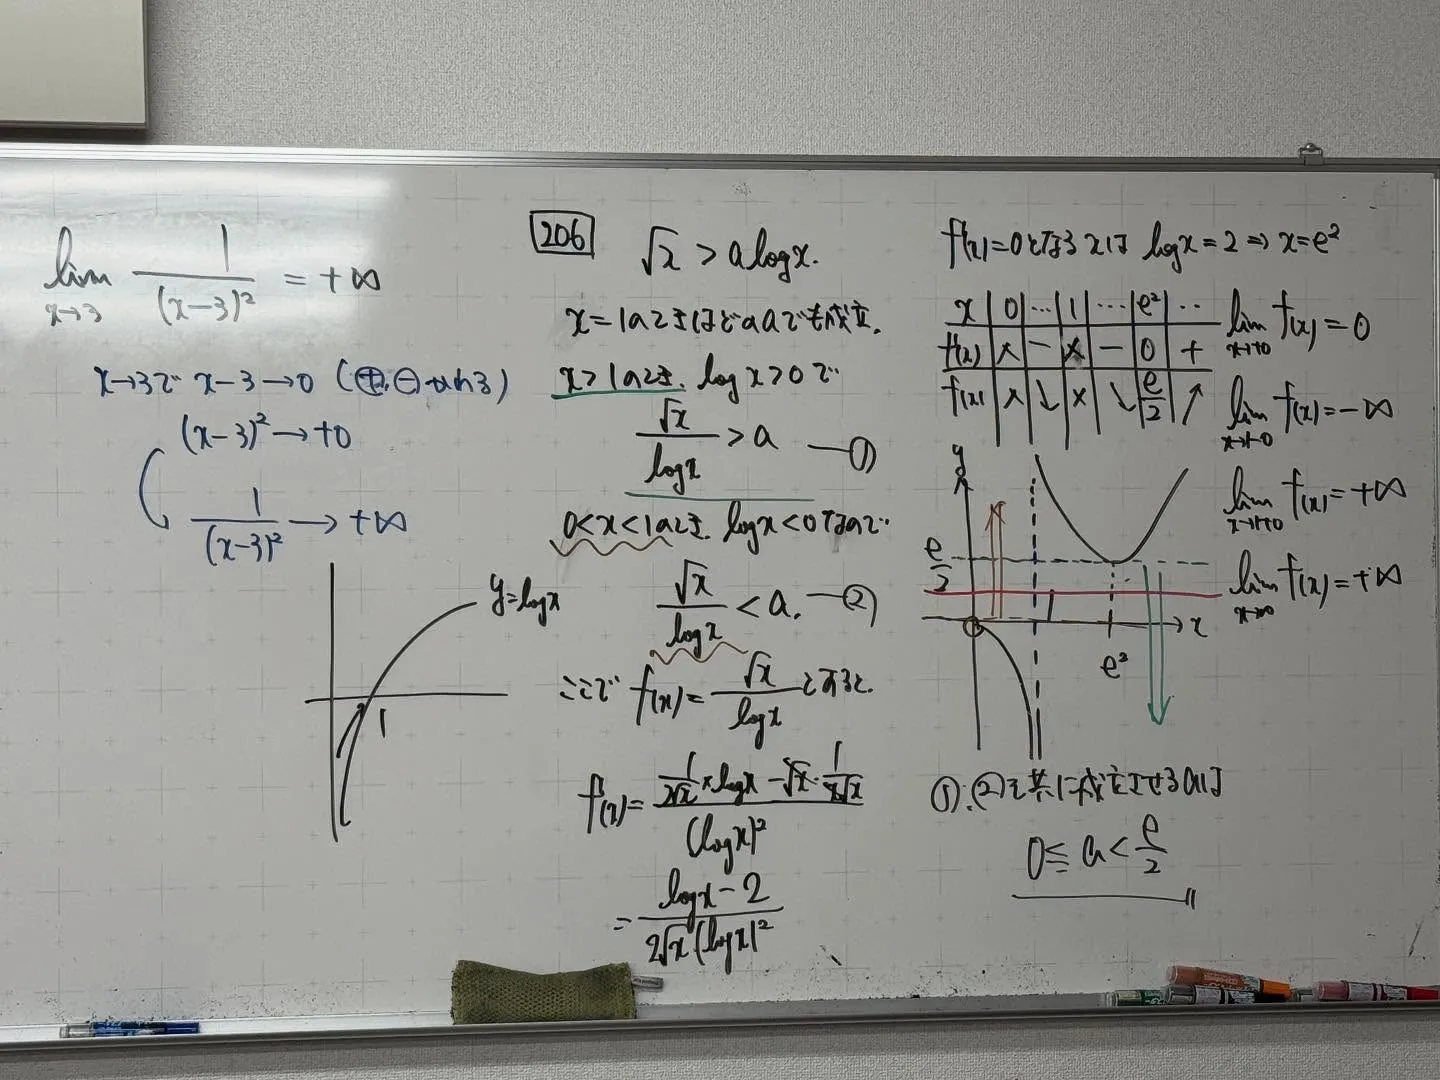 lim x→3 1/(x-3)² = +∞
x→3で x-3→0 (⊕,⊖
(x-3)²→+0
1/(x-3)² → +∞
y=logx
1
206
√x > a logx.
x=1のときはどのaでも成立.
x>1のとき. log x>0で
√x/logx > a —①
0<x<1のとき. logx<0なので
√x/logx < a. —②
ここで f(x)= √x/logx とすると.
f'(x)= (1/2√x × logx - √x・1/x)/(logx)²
= (logx-2)/(2√x(logx)²)
f'(x)=0となるxは logx=2⇒x=e²
x | 0 | … | 1 | … | e² | ‥
f'(x) | × | - | × | - | 0 | +
f(x) | × | ↓ | × | ↓ | e/2 | ↗
lim x→+0 f(x)=0
lim x→1-0 f(x)=-∞
lim x→1+0 f(x)=+∞
lim x→∞ f(x)=+∞
y
e/2
x
e²
①,②を共に成立させるaは
0≦a<e/2